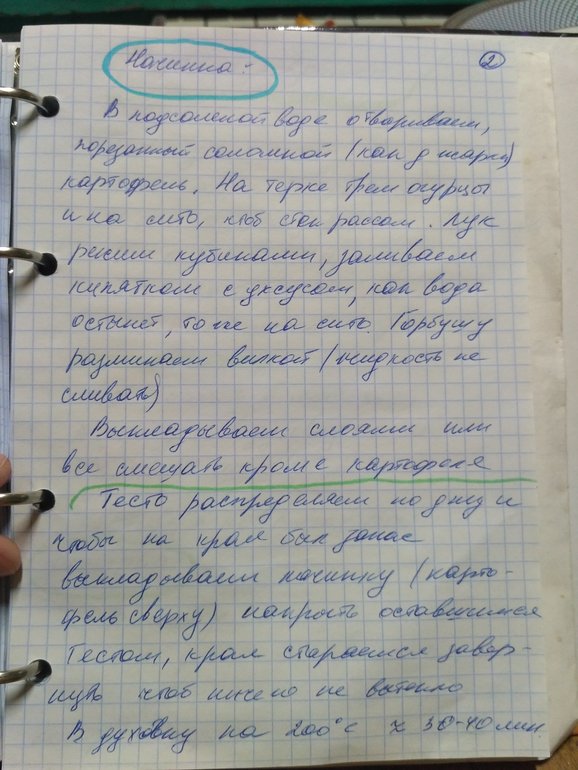 Начинка:
2
В подсоленой воде отвариваем,
порезанный соломкой (как д жарки)
картофель. На терке трем огурцы
и на сито, чтоб стек рассол. Лук
режим кубиками, заливаем
кипятком с уксусом, как вода
остынет, тоже на сито. Горбушу
разминаем вилкой (жидкость не
сливать)
Выкладываем слоями или
все смешать кроме картофеля
Тесто распределяем по дну и
чтобы на края был запас
выкладываем начинку (карто-
фель сверху) накрыть оставшимся
Тестом, края стараемся завер-
нуть чтоб ничего не вытекло
В духовку на 200°С 30-40 мин.